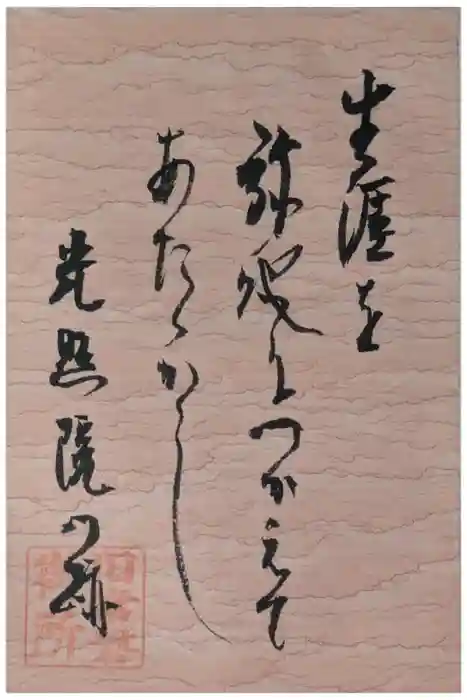 生涯を
弥陀につかえて
あたゝかし
光照院の跡